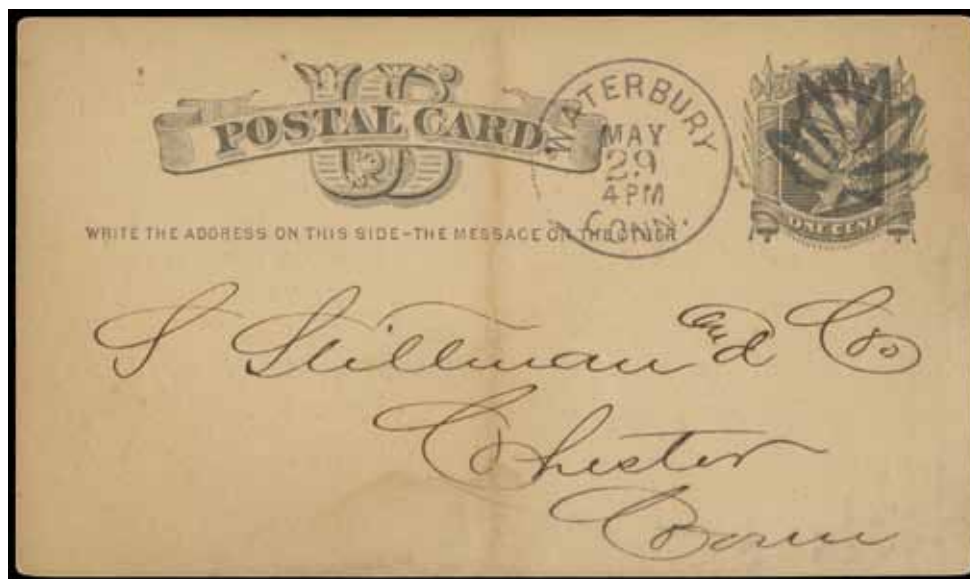 US
POSTAL CARD.
WATERBURY
MAY
29
4 PM
CONN.
ONE CENT
WRITE THE ADDRESS ON THIS SIDE-THE MESSAGE ON THE OTHER
S Stillman and Co
Chester
Conn